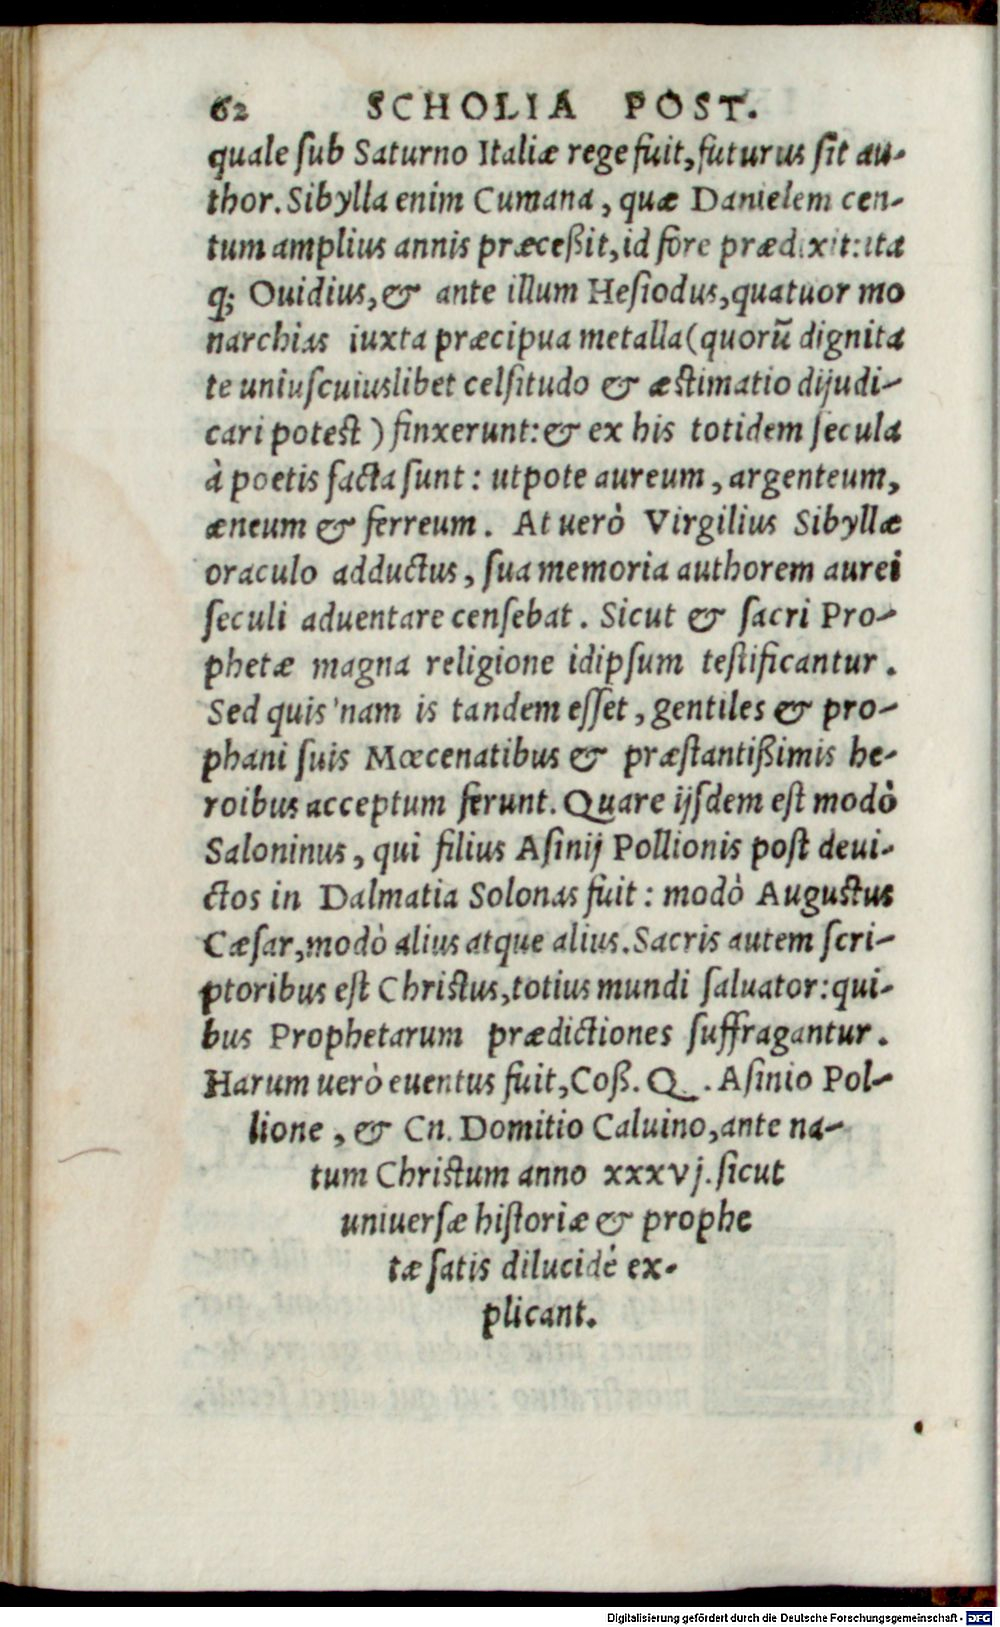 62 SCHOLIA POST.
quale ſub Saturno Italiæ rege fuit, futurus ſit au-
thor. Sibylla enim Cumana, quæ Danielem cen-
tum amplius annis præceßit, id fore prædixit: ita
q; Ouidius, & ante illum Heſiodus, quatuor mo
narchias iuxta præcipua metalla (quorū dignita
te uniuſcuiuslibet celſitudo & æſtimatio dijudi-
cari poteſt) finxerunt: & ex his totidem ſecula
à poetis facta ſunt: utpote aureum, argenteum,
æneum & ferreum. At uerò Virgilius Sibyllæ
oraculo adductus, ſua memoria authorem aurei
ſeculi aduentare cenſebat. Sicut & ſacri Pro-
phetæ magna religione idipſum teſtificantur.
Sed quis'nam is tandem eſſet, gentiles & pro-
phani ſuis Mœcenatibus & præſtantißimis he-
roibus acceptum ferunt. Quare ijſdem eſt modò
Saloninus, qui filius Aſinij Pollionis poſt deui-
ctos in Dalmatia Solonas fuit: modò Auguſtus
Cæſar, modò alius atque alius. Sacris autem ſcri-
ptoribus eſt Chriſtus, totius mundi ſaluator: qui-
bus Prophetarum prædictiones ſuffragantur.
Harum uerò euentus fuit, Coß. Q. Aſinio Pol-
lione, & Cn. Domitio Caluino, ante na-
tum Chriſtum anno xxxvj. ſicut
uniuerſæ hiſtoriæ & prophe
tæ ſatis dilucidè ex-
plicant.
Digitalisierung gefördert durch die Deutsche Forschungsgemeinschaft - DFG